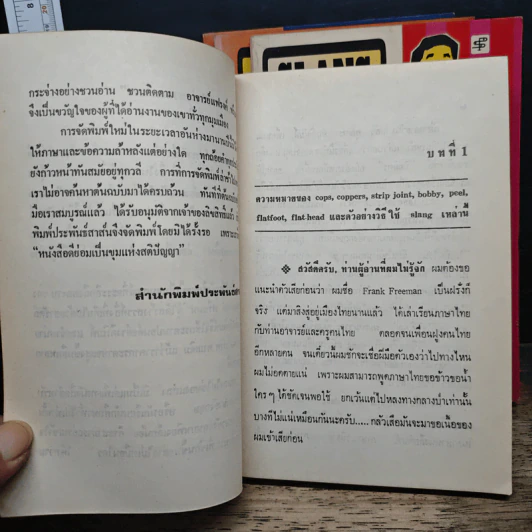 SLANG
กระจ่างอย่างชวนอ่าน ชวนติดตาม อาจารย์แฟรงค์
จึงเป็นขวัญใจของผู้ที่ได้อ่านงานของเขาทั่วทุกมุมเมือง
การจัดพิมพ์ใหม่ในระยะเวลาอันห่างมานาน
ให้ภาษาและข้อความล้าหลังแต่อย่างใด
ยังก้าวหน้าทันสมัยอยู่ทุกวลี การที่การจัดพิมพ์
เราไม่อาจค้นหาต้นฉบับมาได้ครบถ้วน ทันที
มือเราสมบูรณ์แล้ว ได้รับอนุมัติจากเจ้าของลิขสิทธิ์แล้ว
พิมพ์ประพันธ์สาส์นจึงจัดพิมพ์โดยมิได้รั้งรอ
"หนังสือดีย่อมเป็นขุมแห่งสติปัญญา"
สำนักพิมพ์ประพันธ์
บทที่ 1
ความหมายของ cops, coppers, strip joint, bobby, peel,
flatfoot, flat-head และตัวอย่างวิธีใช้ slang เหล่านี้
สวัสดีครับ, ท่านผู้อ่านที่ผมไม่รู้จัก ผมต้องขอ
แนะนำตัวเสียก่อนว่า ผมชื่อ Frank Freeman เป็นฝรั่งก็
จริง แต่มาสิงสู่อยู่เมืองไทยนานแล้ว ได้เล่าเรียนภาษาไทย
กับท่านอาจารย์และครูคนไทย ตลอดจนเพื่อนฝูงคนไทย
อีกหลายคน จนเดี๋ยวนี้ผมชักจะเชื่อฝีมือตัวเองว่าไปทางไหน
ผมไม่อดตายแน่ เพราะผมสามารถพูดภาษาไทยขอข้าวขอน้ำ
ใคร ๆ ได้ชัดเจนพอใช้ ยกเว้นแต่ไปหลงทางกลางป่าเท่านั้น
บางทีไม่แน่เหมือนกันนะครับ.....กลัวเสือมันจะมาขอเนื้อของ
ผมเข้าเสียก่อน